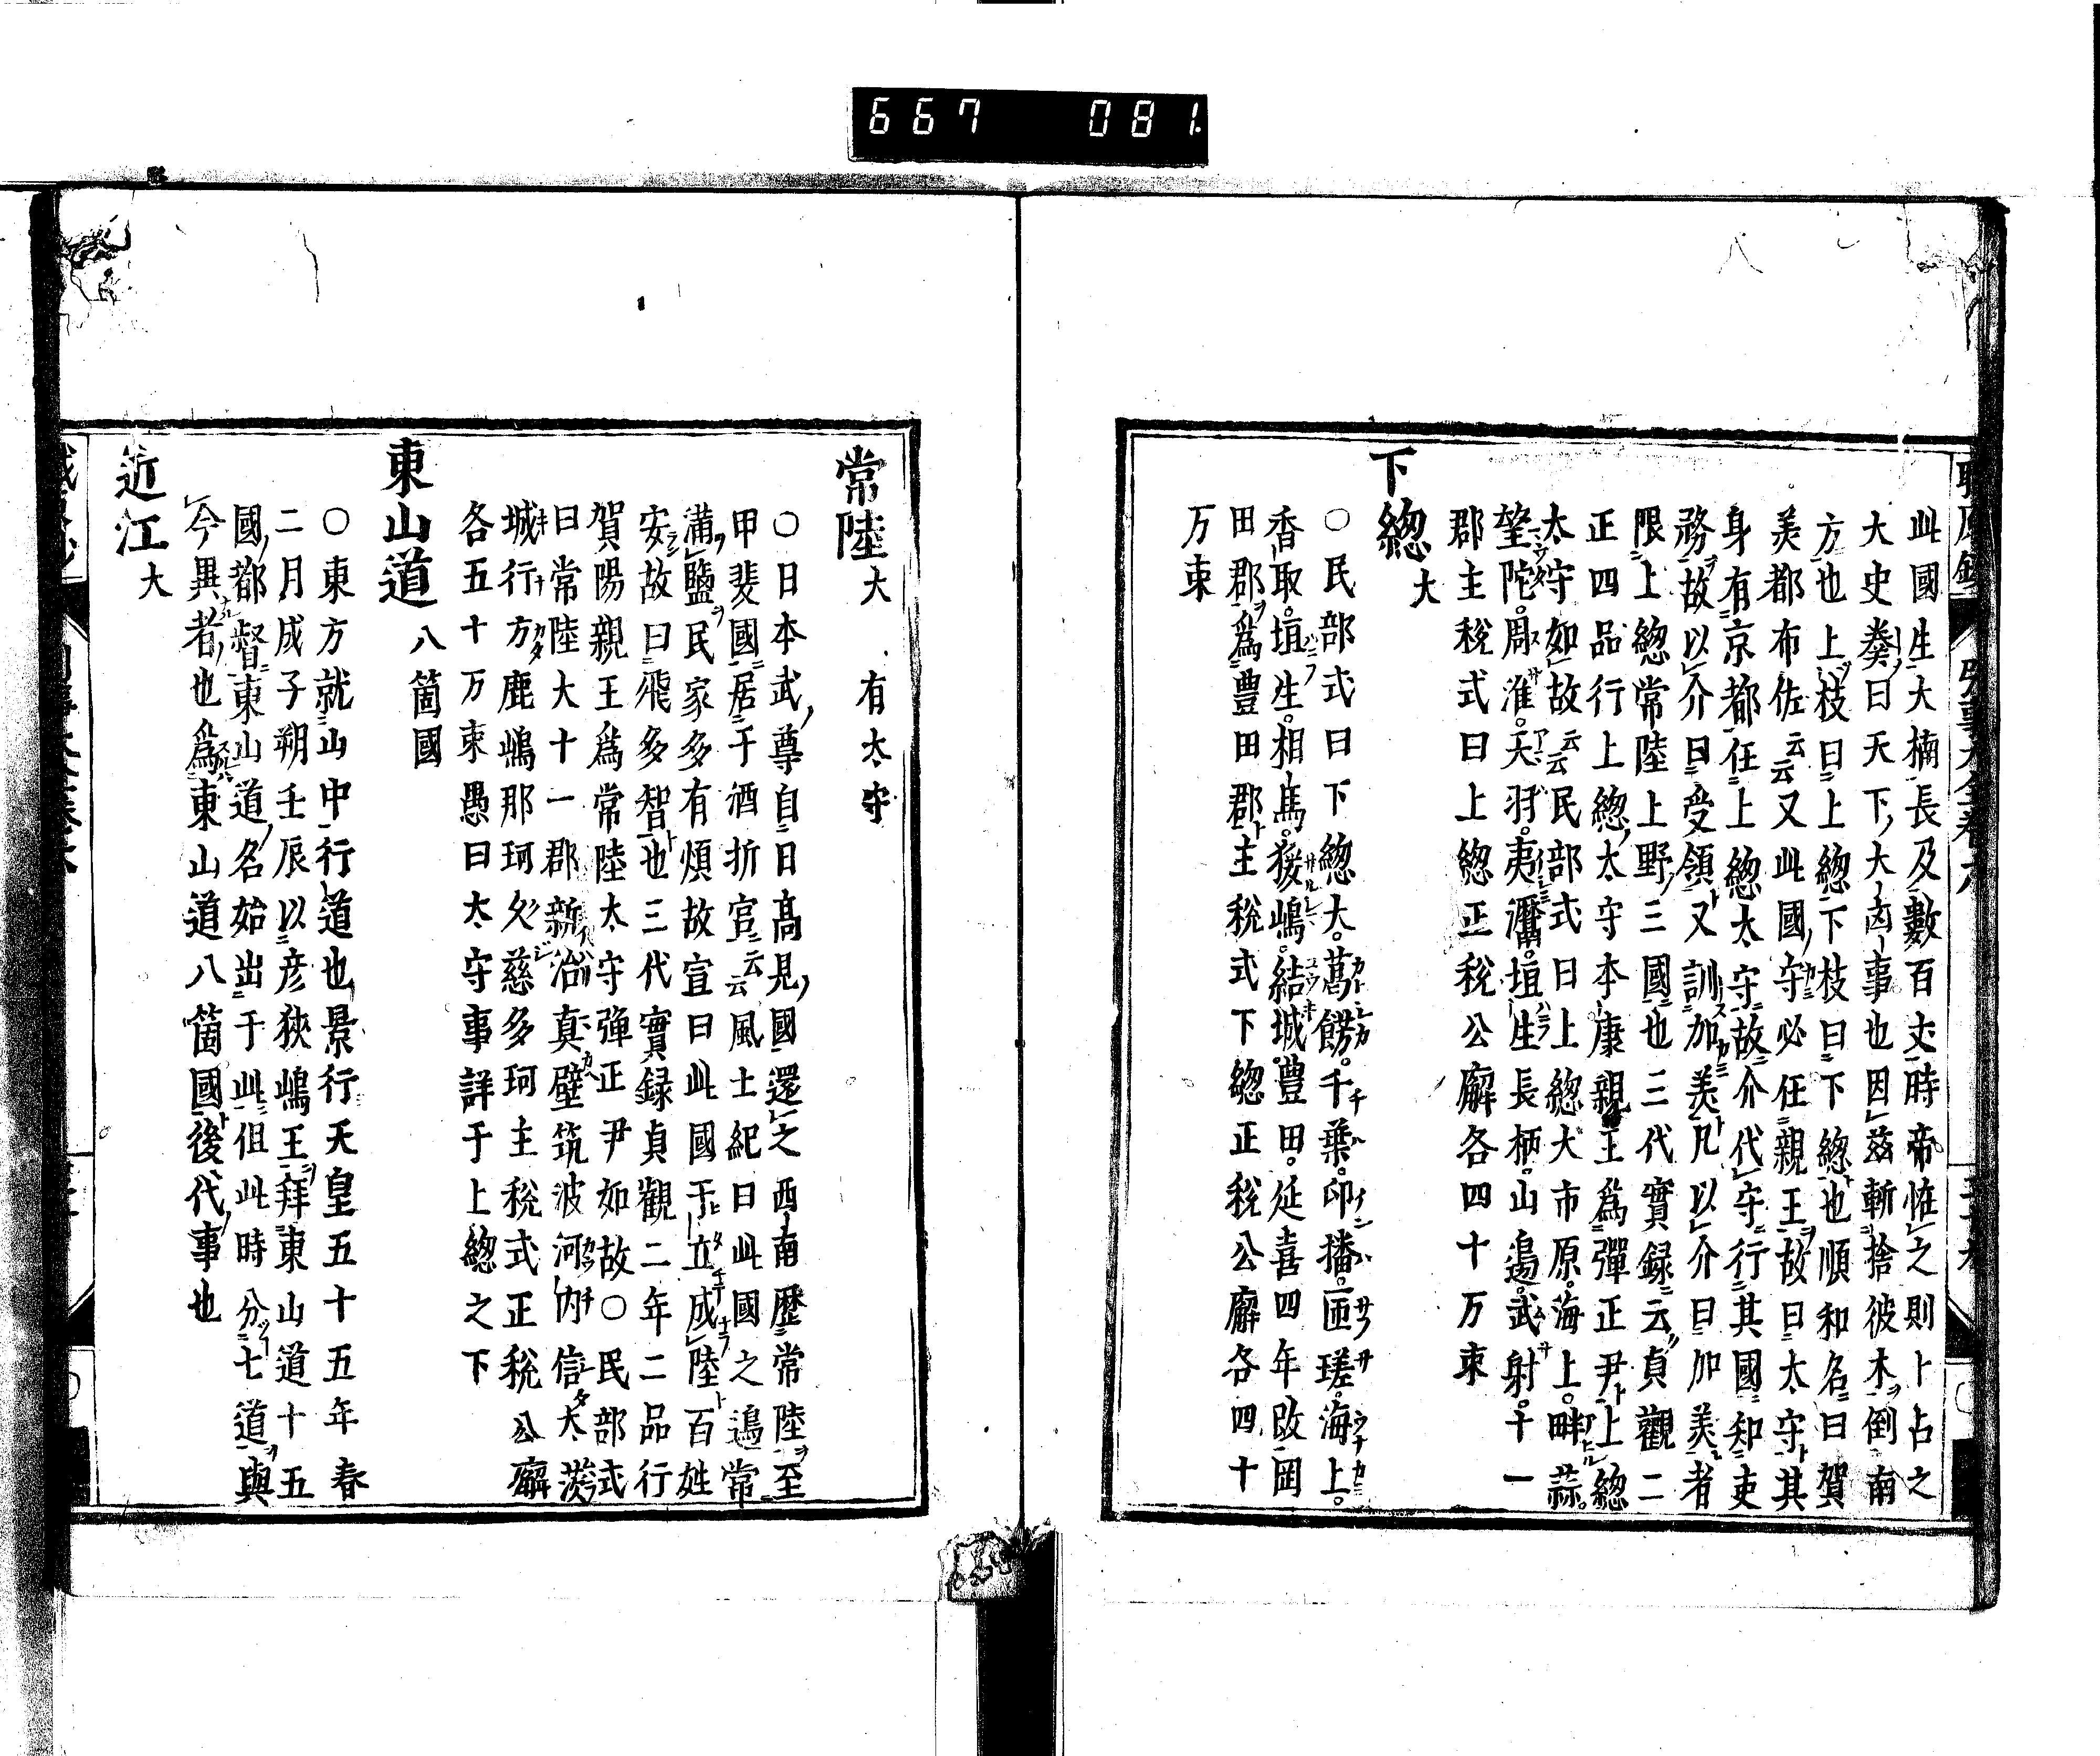 667 081
此國生大楠長及數百丈時帝恠之則卜占之
大史奏曰天下大凶事也因茲斬捨彼木倒南
方也上枝曰上總下枝曰下總也順和名曰賀
美都布佐云云又此國守必任親王故曰太守其
身有京都任上總太守故介代守行其國知吏
務故以介曰受領又訓加美凡以介曰加美者
限上總常陸上野三國也三代實録云貞觀二
正四品行上總太守本康親王爲彈正尹上總
太守如故云云民部式曰上總大市原海上畔蒜
望陀周淮天羽夷灊埴生長柄山邊武射十一
郡主稅式曰上總正稅公廨各四十万束
下總大
○民部式曰下總大葛餝千葉印播匝瑳海上
香取埴生相馬猨嶋結城豊田延喜四年改岡
田郡爲豊田郡主稅式下總正稅公廨各四十
万束
常陸大 有太守
○日本武尊自日高見國還之西南歷常陸至
甲斐國居于酒折宮云云風土紀曰此國之邊常
滿鹽民家多有煩故宣曰此國于立成陸百姓
安故曰飛多智也三代實録貞觀二年二品行
賀陽親王爲常陸太守彈正尹如故○民部式
曰常陸大十一郡新治真壁筑波河內信太茨
城行方鹿嶋那珂久慈多珂主稅式正稅公廨
各五十万束愚曰太守事詳于上總之下
東山道八箇國
○東方就山中行道也景行天皇五十五年春
二月戊子朔壬辰以彦狹嶋王拜東山道十五
國都督東山道名始出于此但此時分七道與
今異者也爲東山道八箇國後代事也
近江大